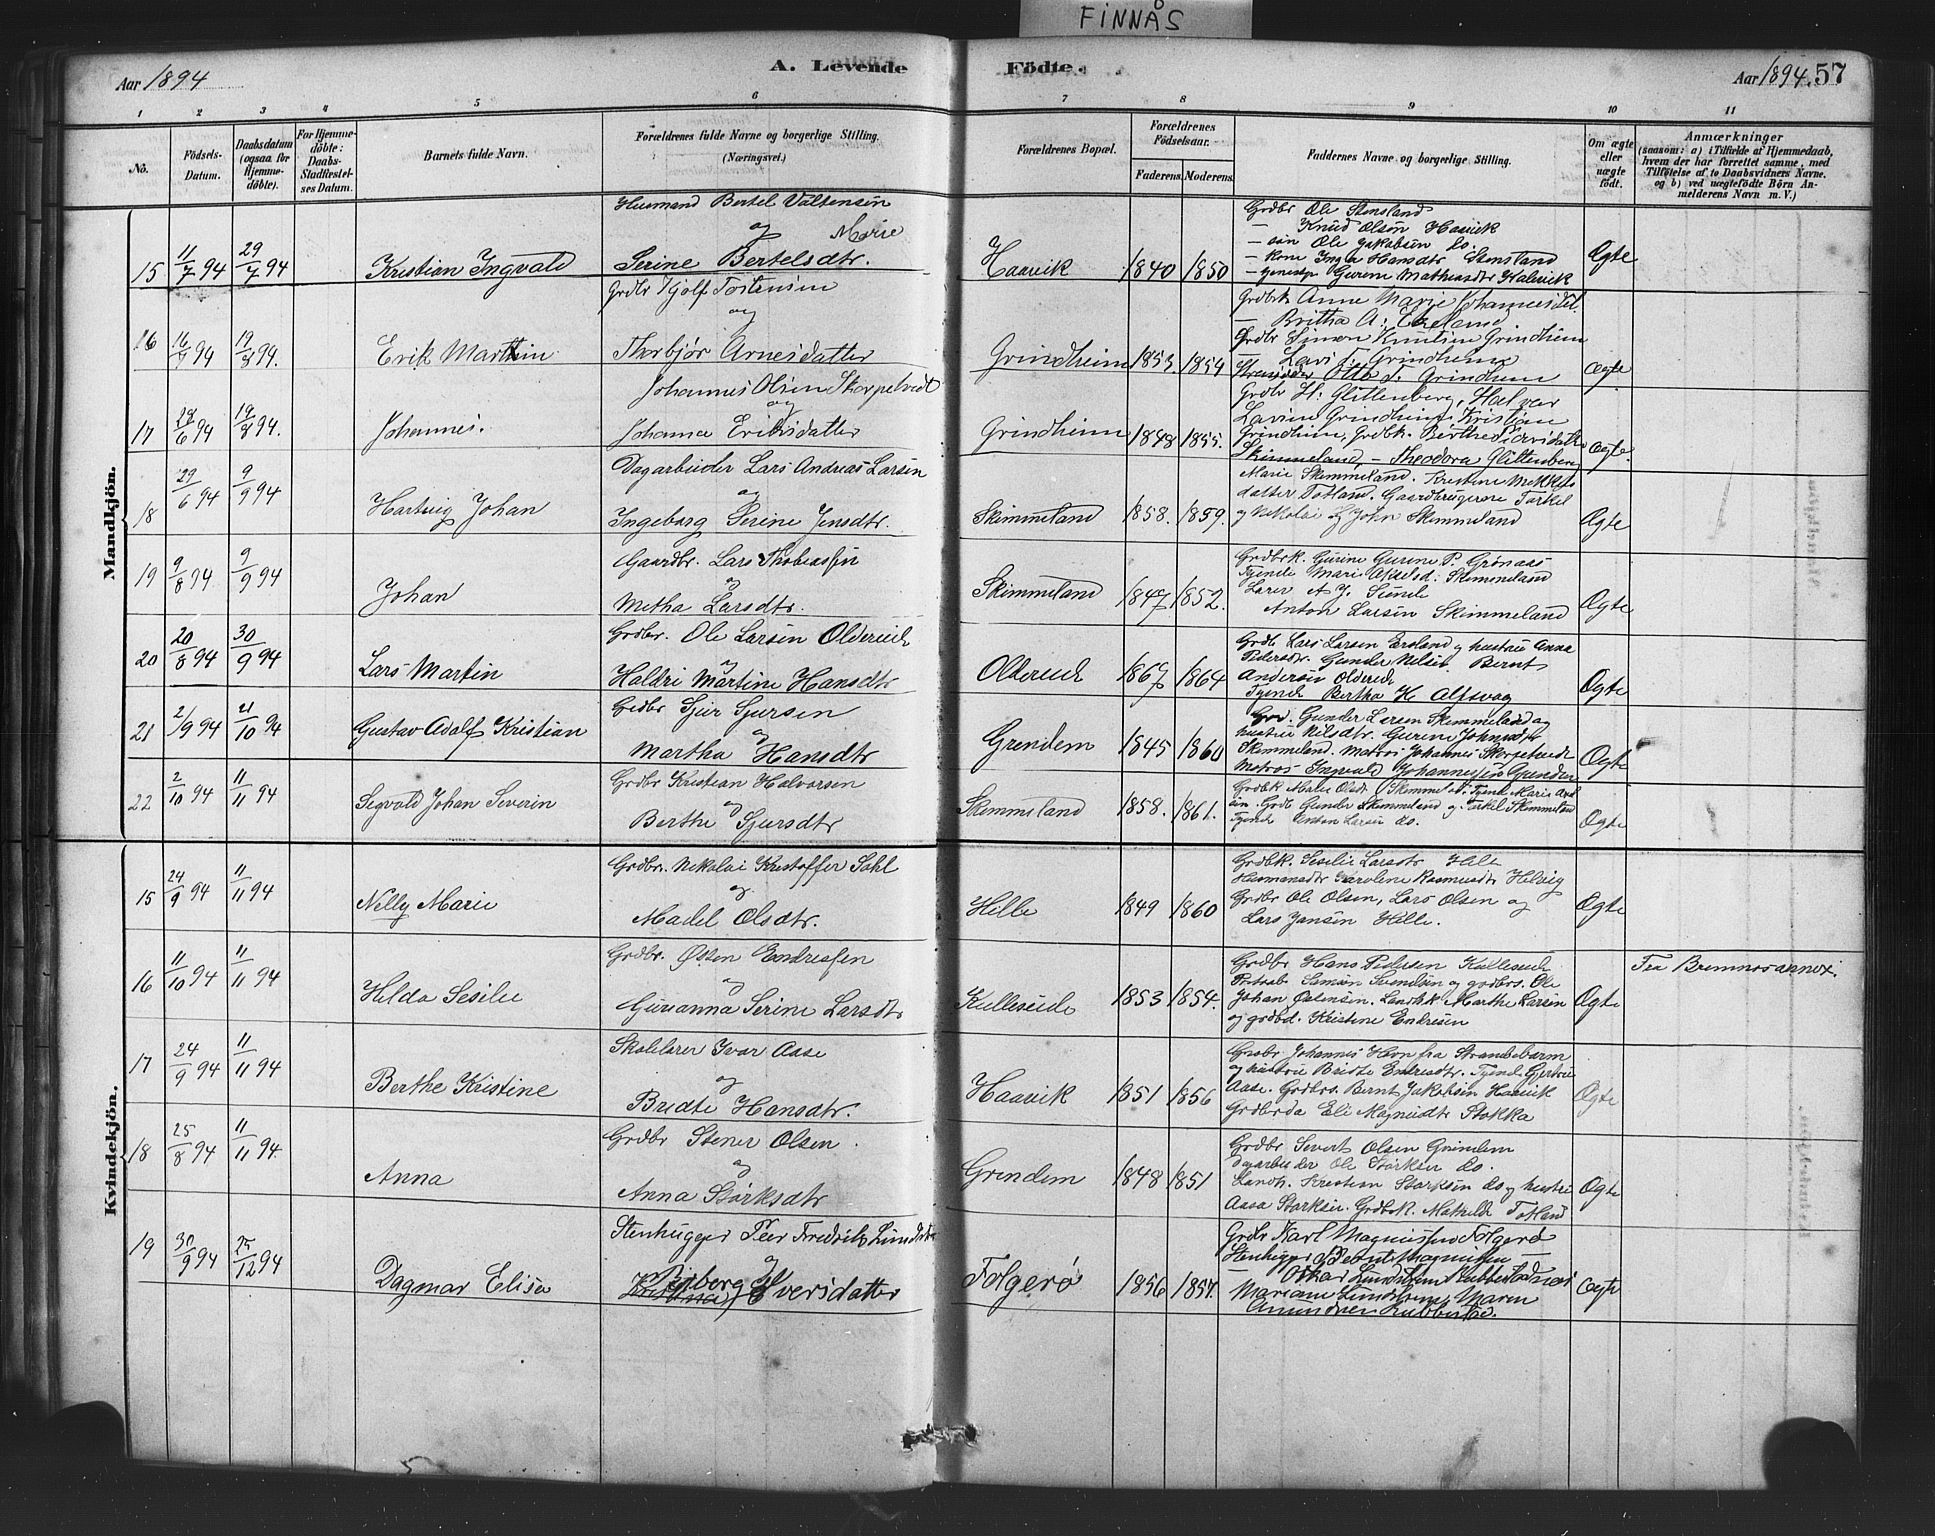 FINNÅS
Aar 1894
A. Levende Födte.
Aar 1894. 57
1 2 3 4 5 6 7 8 9 10 11
No.
Födsels-Datum.
Daabsdatum (ogsaa for Hjemme-döbte).
For Hjemme-döbte: Daabs-Stadfæstel-ses Datum.
Barnets fulde Navn.
Forældrenes fulde Navne og borgerlige Stilling. (Næringsvei.)
Forældrenes Bopæl.
Forældrenes Födselsaar.
Faderens. Moderens.
Faddernes Navne og borgerlige Stilling.
Om ægte eller uægte födt.
Anmærkninger
(saasom: a) i Tilfælde af Hjemmedaab, hvem der har forrettet samme, med Tilföielse af to Daabsvidners Navne. og b) ved uægtefödte Börn Anmelderens Navn m. V.)
Mandkjön.
15 11/7 94 29/7 94 Kristian Ingvald
Husmand Bertel Valtensen
og Marie
Serine Bertelsdtr.
Haavik 1840 1850
Grdbr Ole Stensland
— Knud Olsen Haavik
— søn Ole Jakobsen do.
— kone Inga Hansdtr Stensland
Gurene Mathiasdtr
Ægte
16 94 94. Erik Martin
Grdbr Tostensen
og
Thorbjør Arnesdatter
Grindheim 1853 1854
Grdbrk Anne Johannesdtr
— Britha A:
Grdbr Simon Knutsen Grindheim
— Lars T. Grindheim
Otto T. Grindheim
Ægte
17 28/6 94 19/8 94. Johannes.
Johannes Olsen Skorpetvedt
og
Johanna Eriksdatter
Grindheim 1848 1855.
Grdbr H. Glittenberg, Halvor
Grindheim, Kristian
Grindheim, Grdbk. Berthe
Skimmeland, — Theodora Glittenberg
Ægte.
18 29/6 94 9/9 94 Hartvig Johan
Dagarbeider Lars Andreas Larsen
og
Ingeborg Serine Jensdtr.
Skimmeland 1858. 1859.
Marie Skimmeland. Kristine
datter Totland. Gaardbrugerne Torkel
og Nikolai og John Skimmeland
Ægte
19 9/8 94 9/9 94 Johan
Gaardbr. Lars Thobiassen
og
Metha Larsdtr.
Skimmeland 1847 1852.
Grdbrk. Gurine Gurine P. Grønaas
Tjende Mari Skimmeland
Lærer A. J.
Anton Larsen Skimmeland
Ægte
20 20/8 94 30/9 94 Lars Martin
Grdbr. Ole Larsen Oldereide
og
Haldri Martine Hansdtr
Oldereide 1867 1864
Grdb Lars Larsen Ersland og hustru Anna
Pedersdtr. Gunder Nilsen. Bernt
Andersen Oldereide
Tjende Bertha H. Alfsvag
Ægte
21 2/9 94 21/10 94 Gustav Adolf Kristian
Grdbr Sjur Sjursen
og
Martha Hansdtr
Grendem 1845 1860
Grd. Gunder Larsen Skimmeland og
hustru Nilsdtr. Gurine Johnsdtr
Skimmeland. Matros Johannes Skorpetvedt
Matros Ingvald Johannessen Grendem
Ægte
22 2/10 94 11/11 94 Segvald Johan Severin
Grdbr Kristian Halvorsen
og
Berthe Sjursdtr
Skimmeland 1858. 1861.
Grdbk Malie Olsdtr Skimmeland. Tjende Marie
Grdb Gunder Skimmeland og Torkel Skimmeland
Tjende Anton Larsen do.
Ægte
Kvindekjön.
15 24/9 94 11/11 94 Nelly Marie
Grdbr. Nikolai Kristoffer Dahl
og
Madel Olsdtr.
Hille 1849 1860
Grdbk. Sesilie Larsdtr Hille
Husmansdtr Karolene Rasmusdtr Helvig
Grdbr Ole Olsen, Lars Olsen og
Lars Jansen Hille.
Ægte
16 11/10 94 11/11 94 Helda Sesilie
Grdbr. Østen Endressen
og
Gurianna Serine Larsdtr
Kulleseide 1853 1854.
Grdbr Hans Pedersen Kulleseide
Samson Svendsen og grdbrs. Ole
Johan Østensen. Landhk. Marthe Larsen
og grdbd. Kristine Endresen
Ægte
Fra Bremnes annex.
17 24/9 94 11/11 94 Berthe Kristine
Skolelærer Ivar Aase
og
Bredte Hansdtr.
Haavik 1851 1856
Grdbr Johannes Havn fra Strandebarm
og hustru Bridte Endresdtr. Tjende Gjertrie
Aase. Grdbrs. Bernt Jakobsen Haavik
Grdbrda Eli Magnusdtr Stokka
Ægte
18 25/8 94 11/11 94. Anna
Grdbr Stener Olsen.
og
Anna Størksdtr
Grendem 1848 1851
Grdbr Severt Olsen Grendem
Dagarbeider Ole Størksen do.
Landh. Kristian Størksen do og hustru
Aasa Størksen. Grdbrk. Mathilde Totland
Ægte
19 30/9 94 25/12 94 Dagmar Elise
Stenhugger Peer Fredrik
og
Iversdatter
Folgerø 1856 1857.
Grdbr Karl Magnussen Folgerø
Stenhugger Bernt Magnussen
— Oskar Lundstrøm
Mariane Lundstrøm, Maren
Amundsen Rubbestad.
Ægte